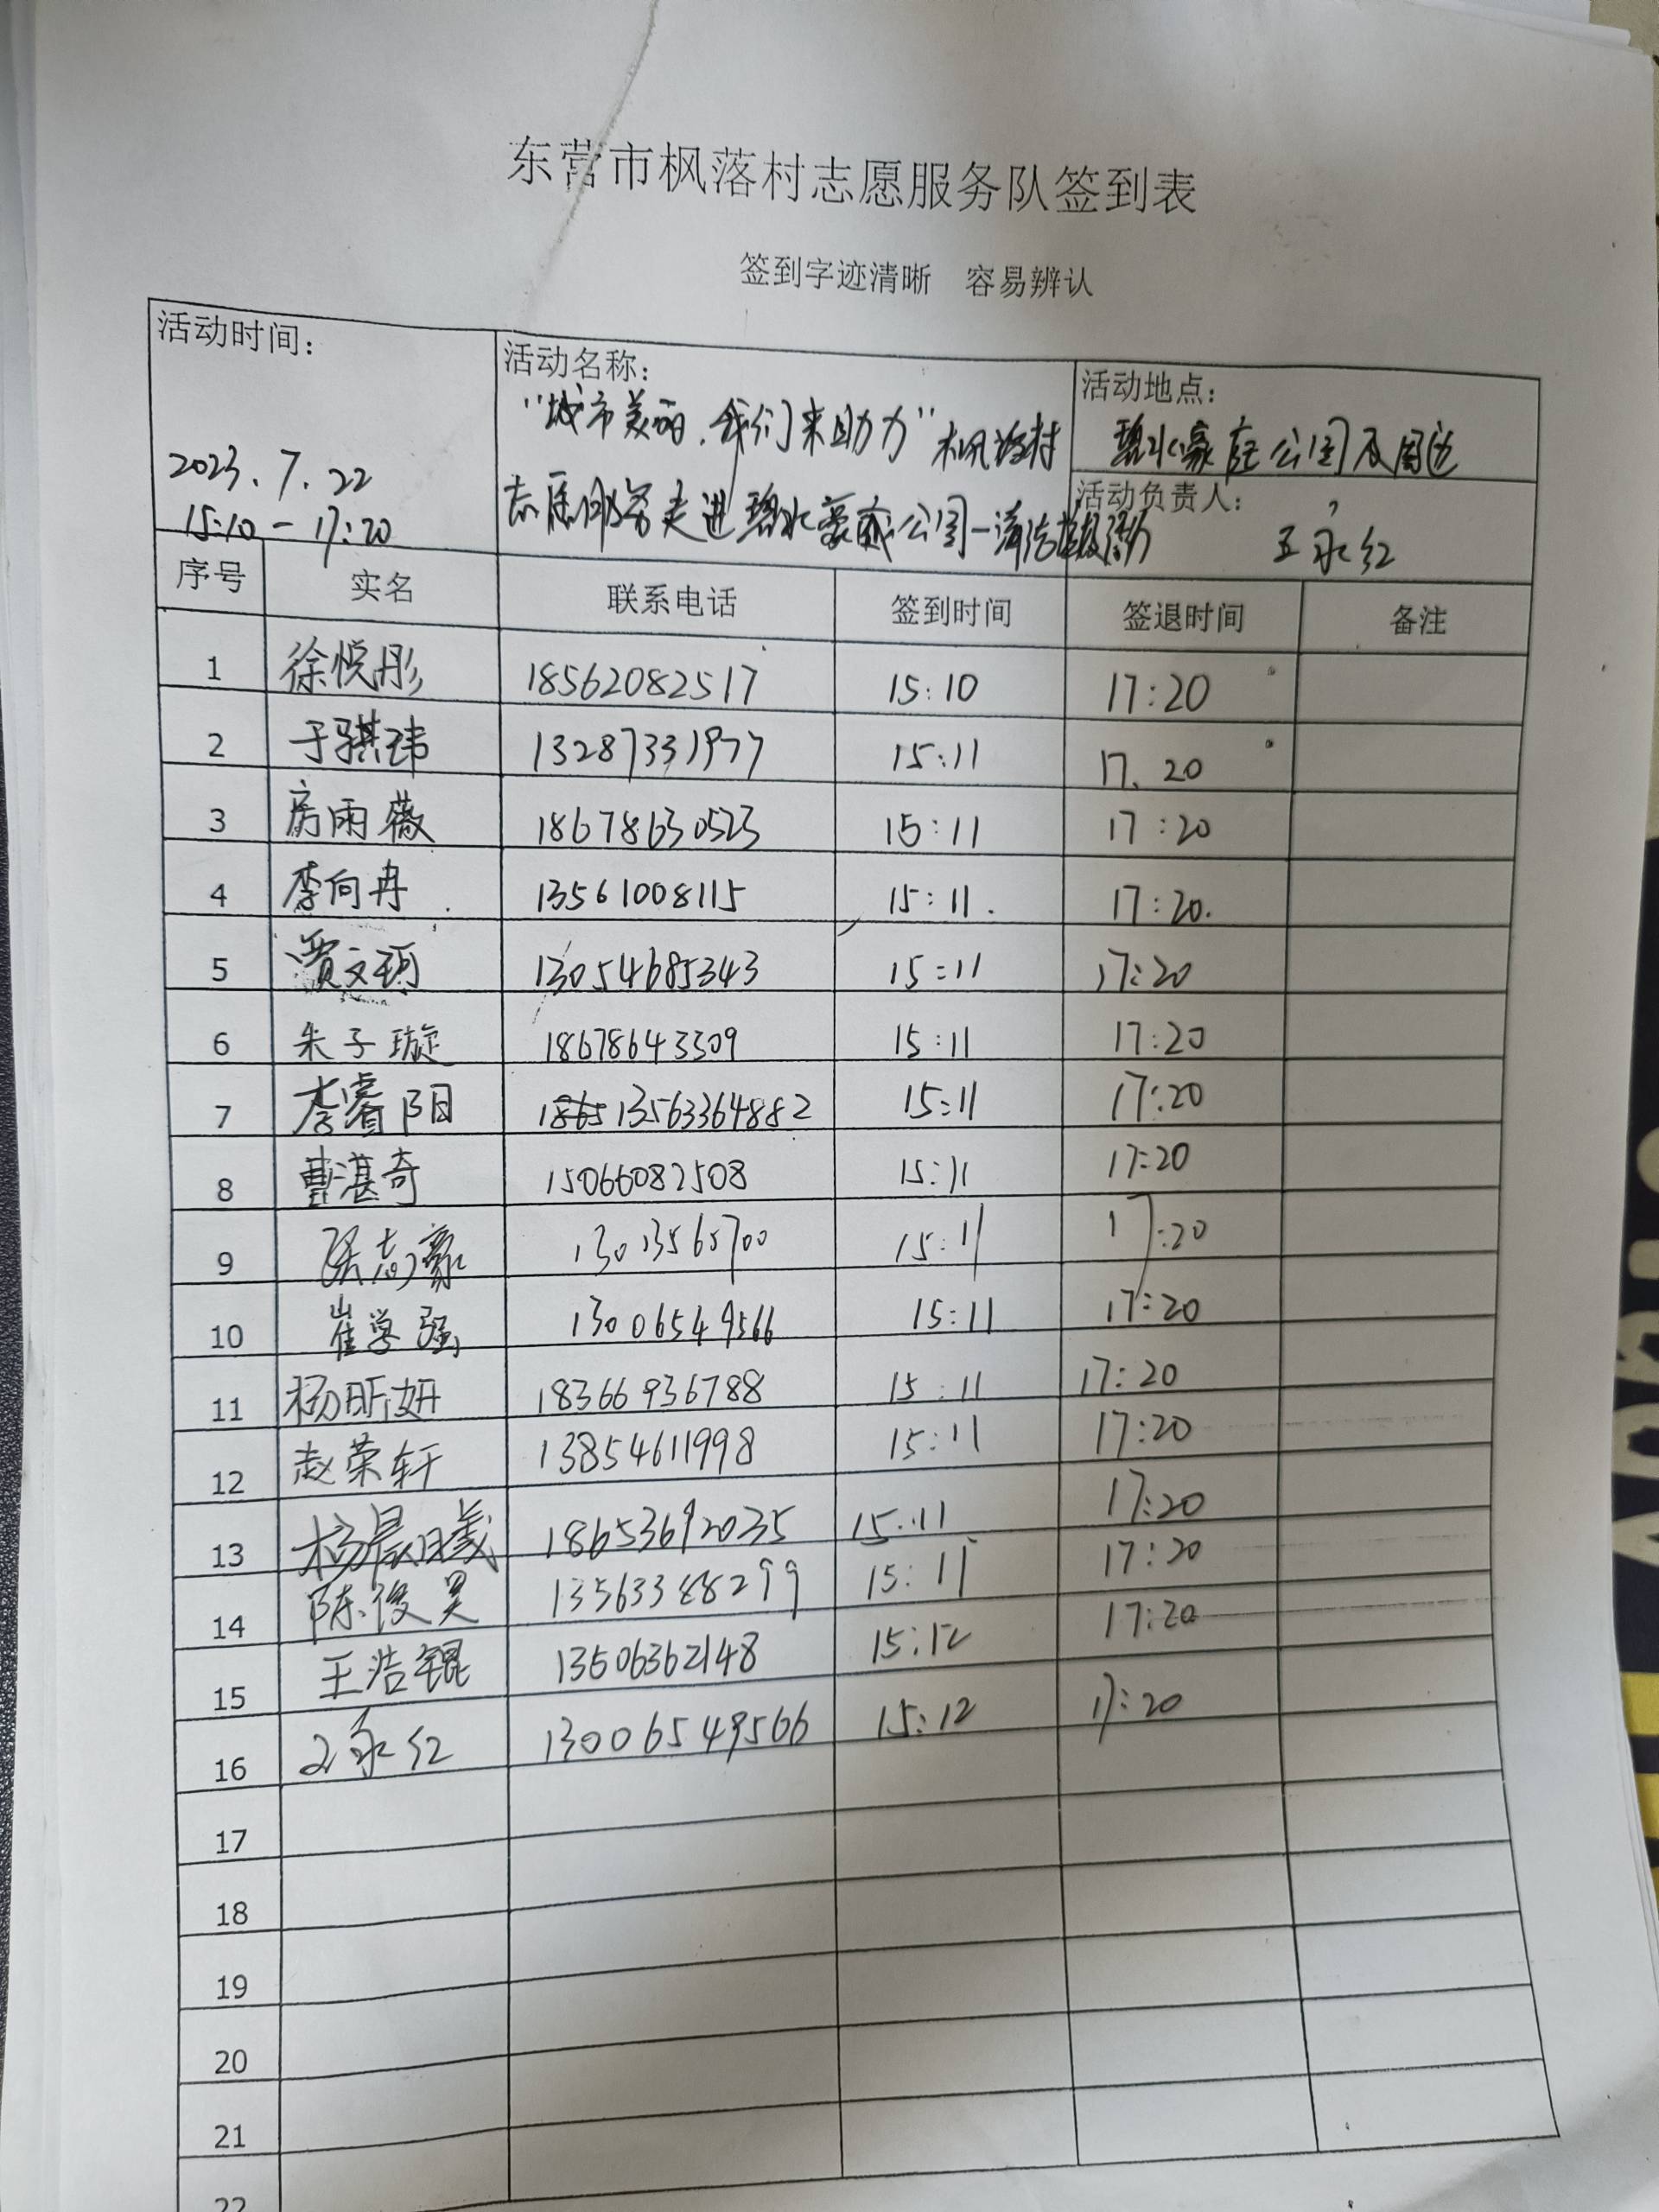 东营市枫落村志愿服务队签到表
签到字迹清晰 容易辨认
活动时间：
2023.7.22
15:10-17:20
活动名称：
"城市美丽,我们来助力"枫落村
志愿服务走进碧水豪庭公园-清洁垃圾活动
活动地点：
碧水豪庭公园及周边
活动负责人：
王永红
序号 实名 联系电话 签到时间 签退时间 备注
1 徐悦彤 18562082517 15:10 17:20
2 于骐玮 13287331977 15:11 17.20
3 房雨薇 18678630523 15:11 17:20
4 李向冉 13561008115 15:11. 17:20.
5 贾文珂 13054685343 15:11 17:20
6 朱子璇 18678643309 15:11 17:20
7 李睿阳 13563364882 15:11 17:20
8 曹湛奇 15066082508 15:11 17:20
9 张志豪 13013565700 15:11 17:20
10 崔学强 13006549566 15:11 17:20
11 杨昕妍 18366936788 15:11 17:20
12 赵荣轩 13854611998 15:11 17:20
13 杨晨曦 18653692035 15:11 17:20
14 陈俊昊 13563388299 15:11 17:20
15 王浩锟 13506362148 15:12 17:20
16 王永红 13006549566 15:12 17:20
17
18
19
20
21
22